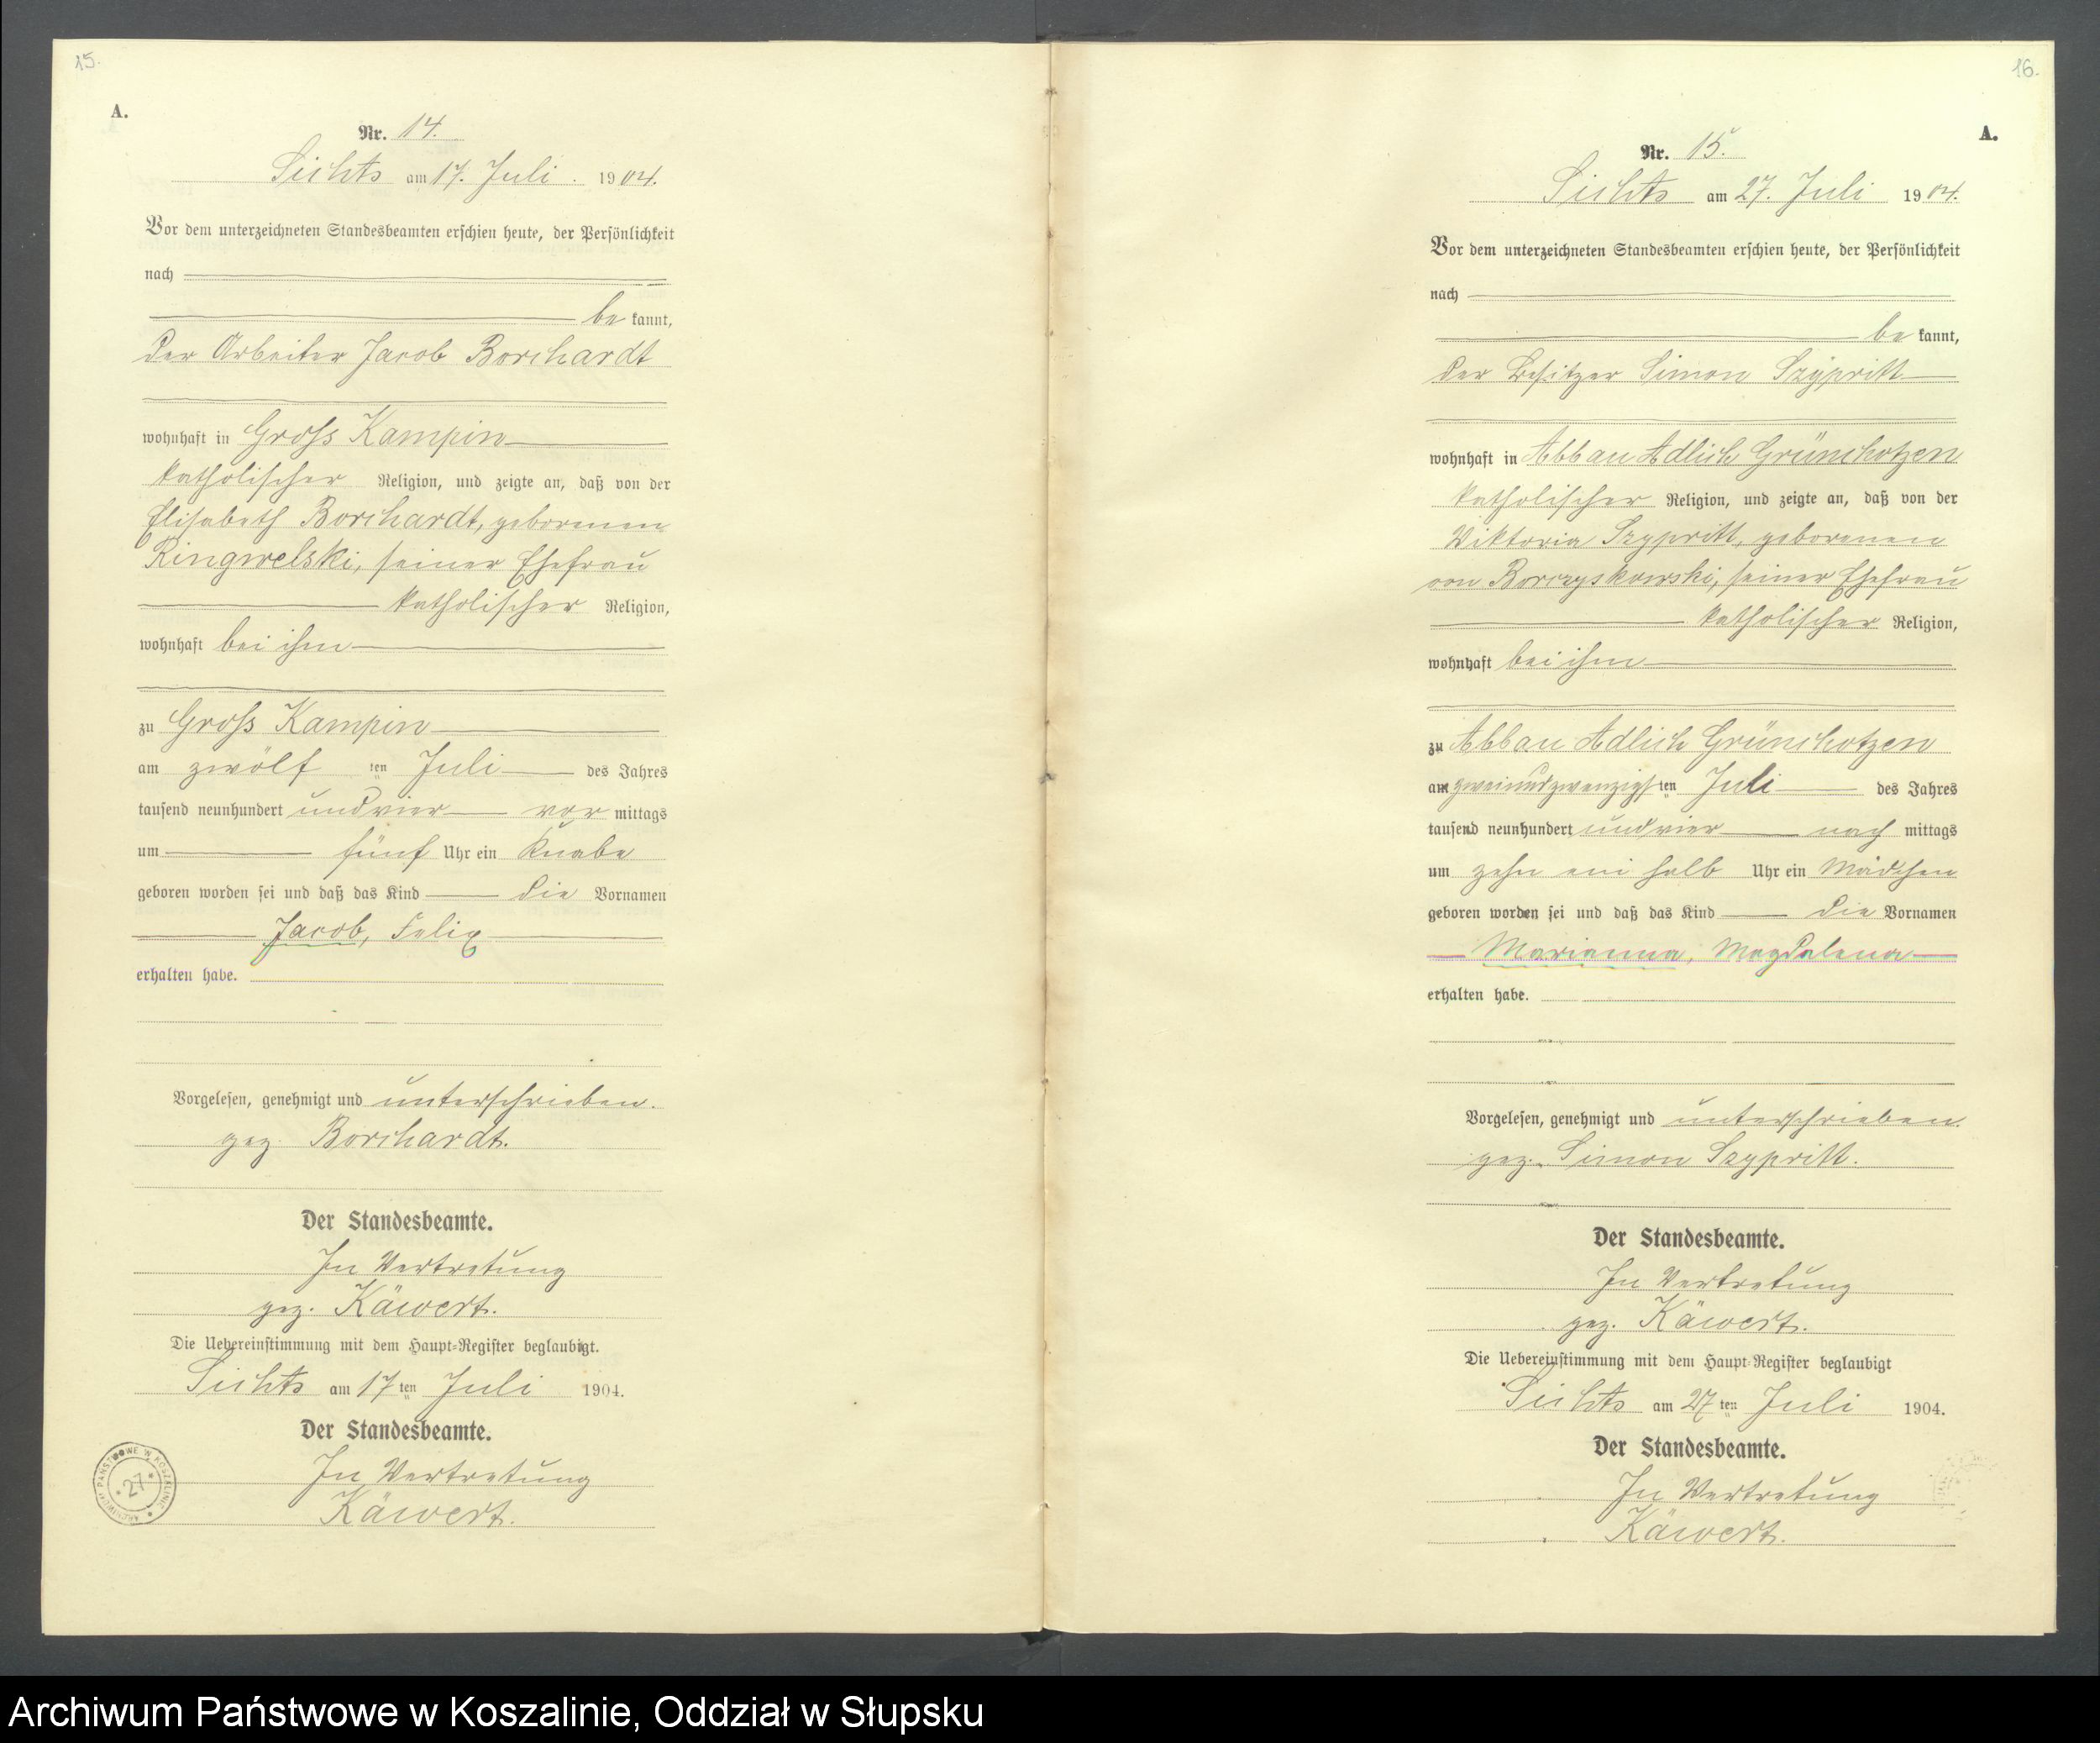 15.
A.
Nr. 14.
Sichts am 17. Juli. 1904.
Vor dem unterzeichneten Standesbeamten erschien heute, der Persönlichkeit
nach
be kannt,
der Arbeiter Jacob Borchardt
wohnhaft in Gross Kampin
katholischer Religion, und zeigte an, daß von der
Elisabeth Borchardt, geborenen
Ringwelski, seiner Ehefrau
katholischer Religion,
wohnhaft bei ihm
zu Gross Kampin
am zwölf ten Juli des Jahres
tausend neunhundert und vier vor mittags
um fünf Uhr ein Knabe
geboren worden sei und daß das Kind die Vornamen
Jacob, Felix
erhalten habe.
Vorgelesen, genehmigt und unterschrieben.
gez. Borchardt.
Der Standesbeamte.
In Vertretung
gez. Käwert.
Die Uebereinstimmung mit dem Haupt-Register beglaubigt.
Sichts am 17 ten Juli 1904.
Der Standesbeamte.
In Vertretung
Käwert.
ARCHIWUM PAŃSTWOWE W KOSZALINIE
* 27 *
16.
A.
Nr. 15.
Sichts am 27. Juli 1904.
Vor dem unterzeichneten Standesbeamten erschien heute, der Persönlichkeit
nach
be kannt,
der Besitzer Simon Szypritt
wohnhaft in Abbau Adlich Grünchotzen
katholischer Religion, und zeigte an, daß von der
Viktoria Szypritt, geborenen
von Borczyskowski, seiner Ehefrau
katholischer Religion,
wohnhaft bei ihm
zu Abbau Adlich Grünchotzen
am zweiundzwanzigsten Juli des Jahres
tausend neunhundert und vier nach mittags
um zehn ein halb Uhr ein Mädchen
geboren worden sei und daß das Kind die Vornamen
Marianna, Magdalena
erhalten habe.
Vorgelesen, genehmigt und unterschrieben.
gez. Simon Szypritt.
Der Standesbeamte.
In Vertretung
gez. Käwert.
Die Uebereinstimmung mit dem Haupt-Register beglaubigt
Sichts am 27 ten Juli 1904.
Der Standesbeamte.
In Vertretung
Käwert.
Archiwum Państwowe w Koszalinie, Oddział w Słupsku